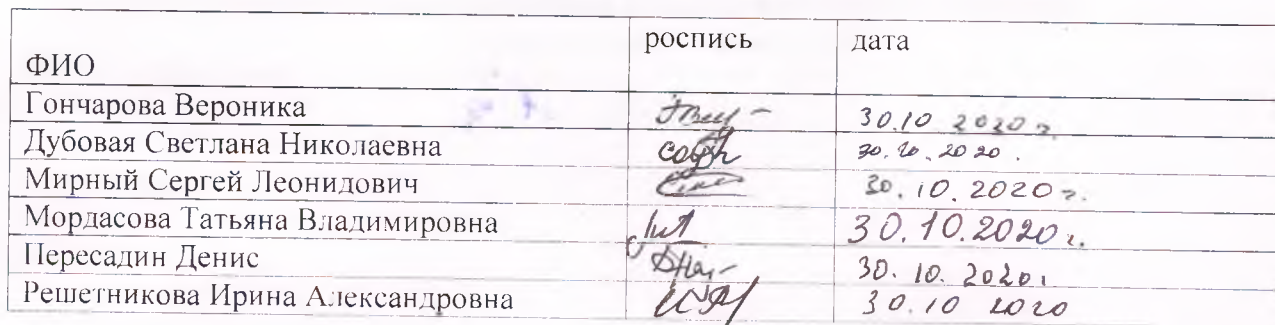 ФИО роспись дата
Гончарова Вероника 30.10 2020 г
Дубовая Светлана Николаевна 30.10.2020.
Мирный Сергей Леонидович 30.10.2020 г.
Мордасова Татьяна Владимировна 30.10.2020 г.
Пересадин Денис 30.10.2020г
Решетникова Ирина Александровна 30.10 2020